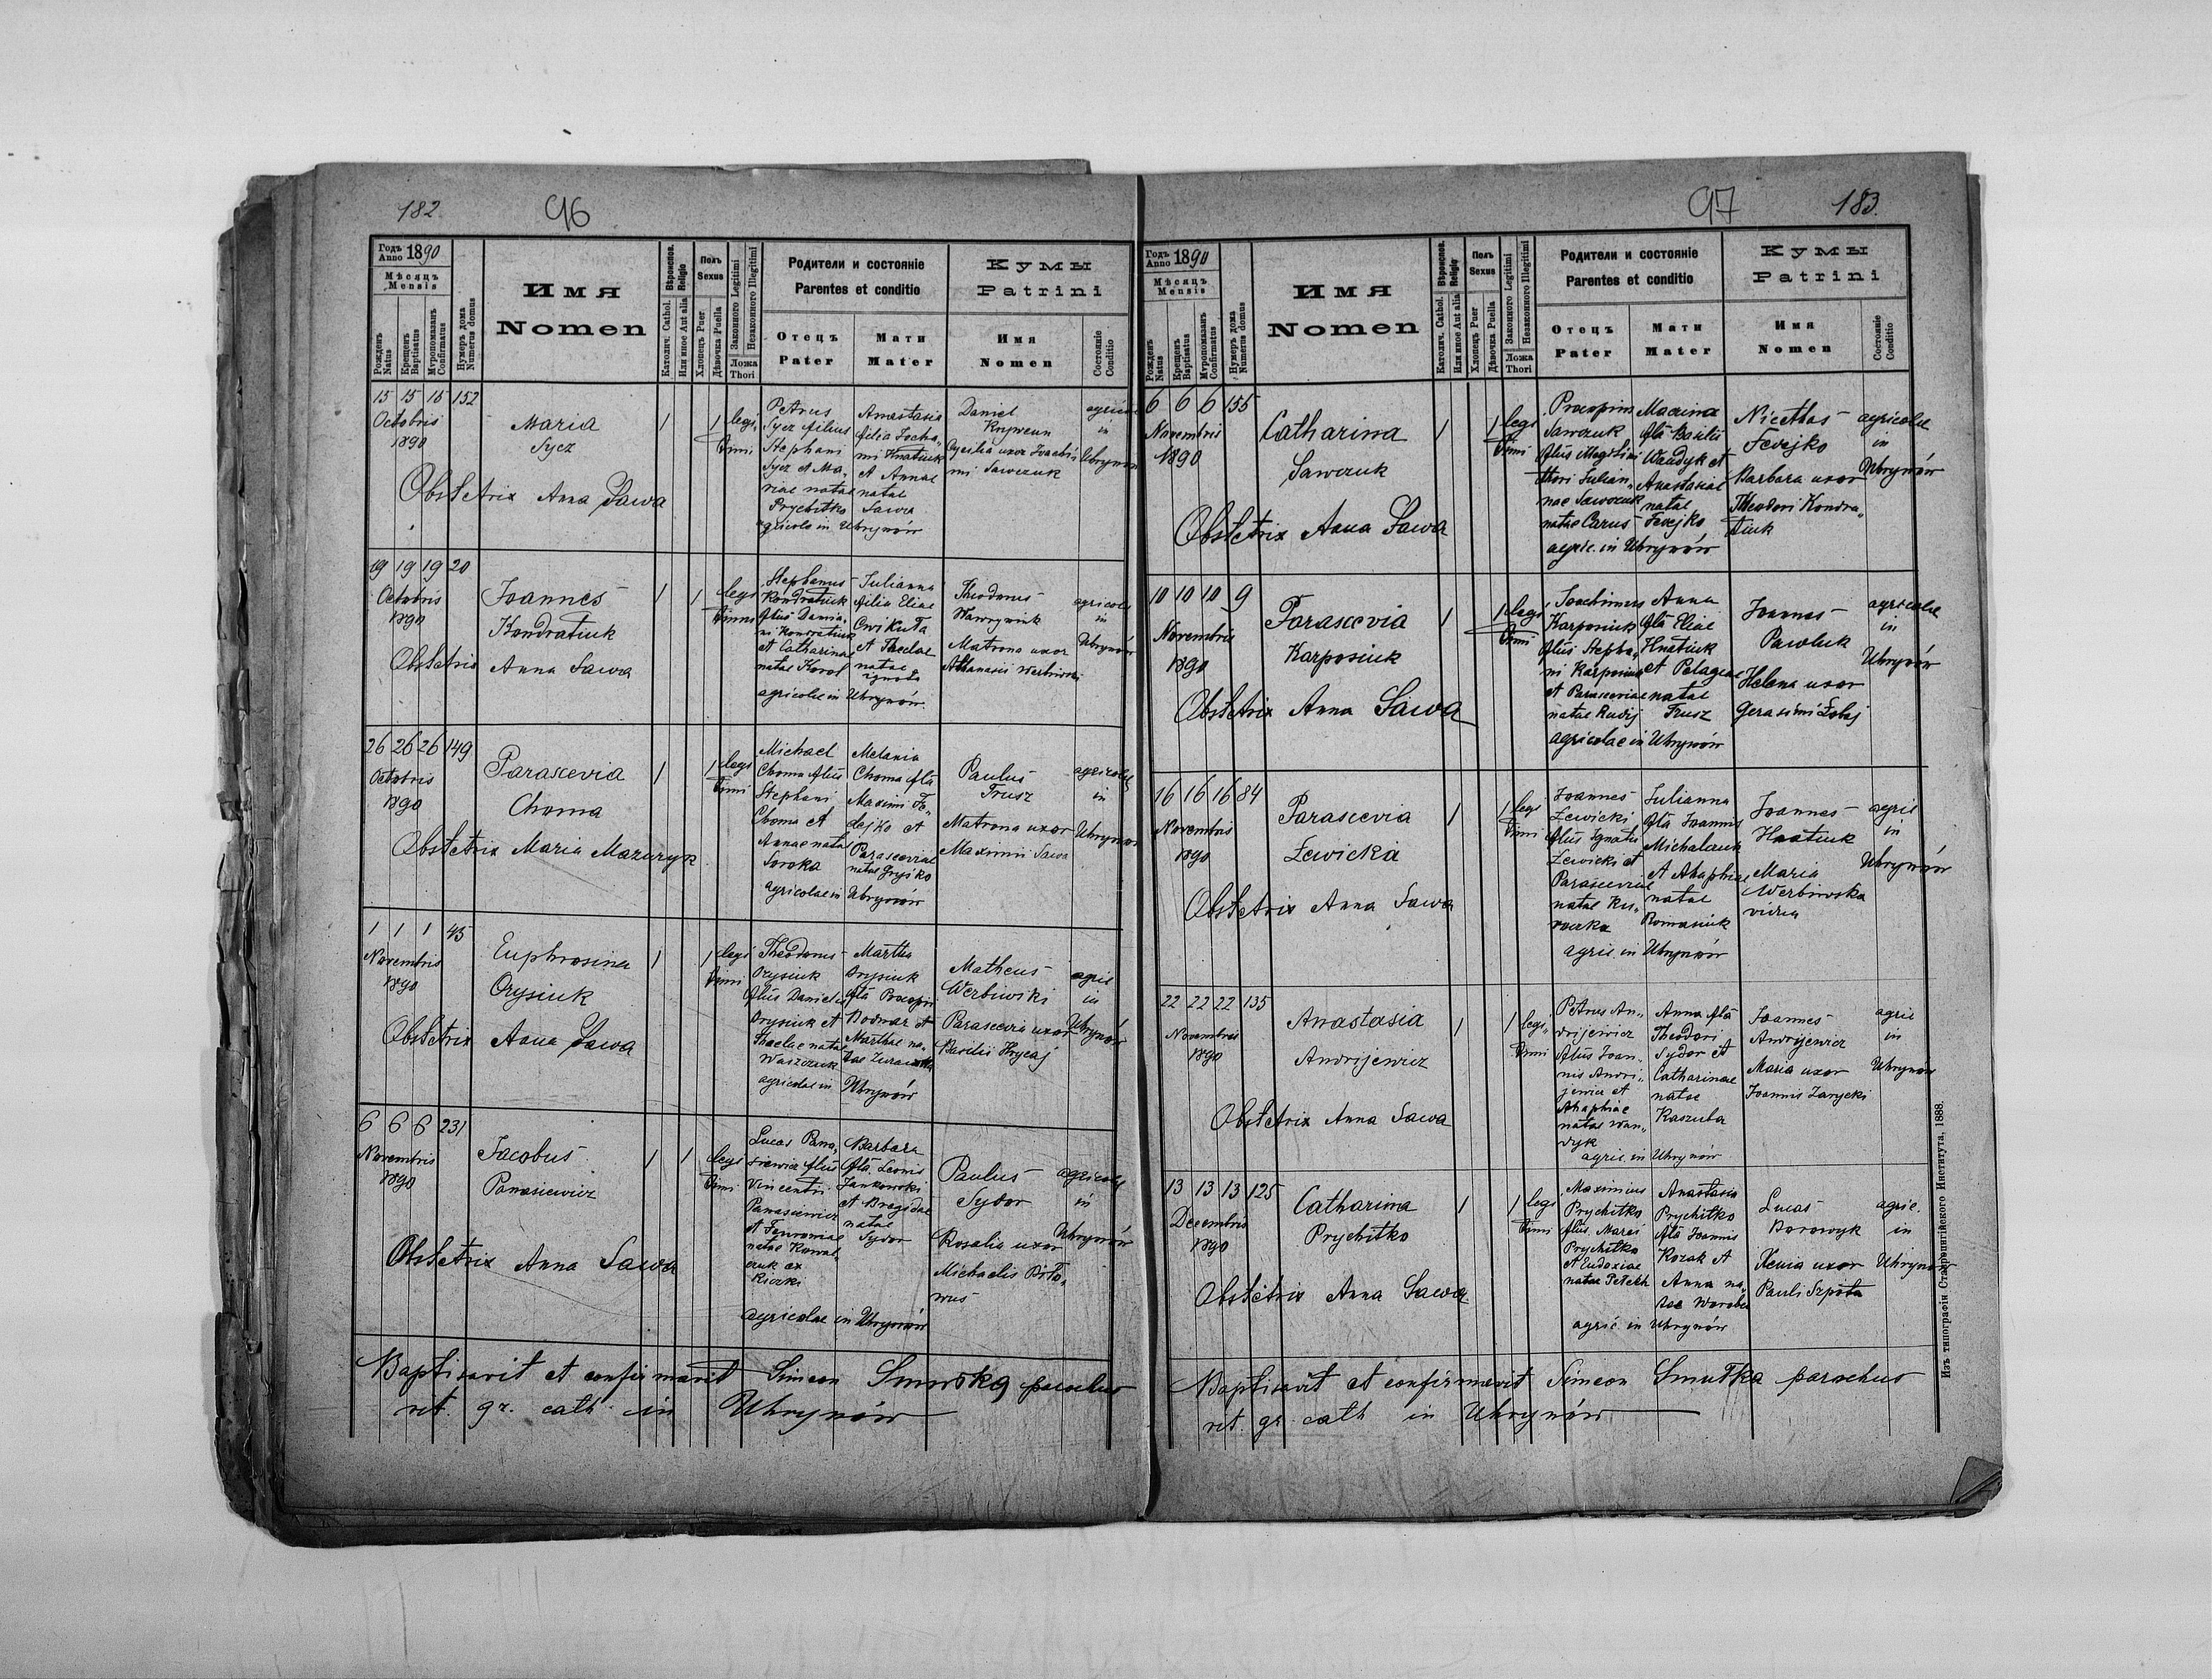 182.
96
Годъ Anno 1890
Мѣсяцъ Mensis
Рожденъ Natus
Крещенъ Baptisatus
Мѵропомазанъ Confirmatus
Нумеръ дома Numerus domus
Имя
Nomen
Вѣроиспов. Religio
Католич. Cathol.
Или иное Aut alia
Полъ
Sexus
Хлопецъ Puer
Дѣвочка Puella
Законного Legitimi
Незаконного Illegitimi
Ложа
Thori
Родители и состояніе
Parentes et conditio
Отецъ
Pater
Мати
Mater
Кумы
Patrini
Имя
Nomen
Состояніе
Conditio
15 15 15 152
Octobris
1890
Maria
Sycz
1
1
legi
timi
Petrus
Sycz filius
Stephani
Sycz et Ma-
riae natae
Prychitko
Anastasia
filia Jocha-
mi Hnatiuk
et Annae
natae
Sawa
agricola in Uhrynów
Daniel
uxor Joachi-
mi Sawczuk
in
Uhrynów
Obstetrix Anna Sawa
19 19 19 20
Octobris
1890
Joannes
Kondratiuk
1
1
legi
timus
Stephanus
Kondratiuk
filius Damia-
ni Kondratiuk
et Catharinae
natae Korol
Julianna
filia Eliae
Cwikuła
et Theclae
natae
ignota
agricolae in Uhrynów.
Theodorus
Matrona uxor
Athanasii Werbiwski
agricolae
in
Uhrynów
Obstetrix Anna Sawa
26 26 26 149
Octobris
1890
Parascevia
Choma
1
1
legi
timi
Michael
Choma filius
Stephani
Choma et
Annae natae
Soroka
Melania
Choma filia
Maximi Fe-
dejko et
Parasceviae
natae Hryśko
agricolae in Uhrynów
Paulus
Trusz
Matrona uxor
Maximii Sawa
agricolae
in
Uhrynów
Obstetrix Maria Mazuryk
1 1 1 45
Novembris
1890
Euphrosina
Orysiuk
1
1
legi
timi
Theodorus
Orysiuk
filius Danielis
Orysiuk et
Theclae natae
Waszczuk
Martha
Orysiuk
filia Procopii
Bodnar et
Marthae na-
tae
agricolae in Uhrynów
Matheus
Werbiwski
Parascevia uxor
Basilii Hrycaj
agric
in
Uhrynów
Obstetrix Anna Sawa
6 6 6 231
Novembris
1890
Jacobus
Panasiewicz
1
1
legi
timi
Lucas Pana-
siewicz filius
Vincentii
Panasiewicz
et Fevroniae
natae Kowal-
czuk ex
Barbara
filia Leonis
Jankowski
et Brigidae
natae
Sydor
agricolae in Uhrynów
Paulus
Sydor
Rosalia uxor
Michaelis Biło-
wus
agricolae
in
Uhrynów
Obstetrix Anna Sawa
Baptisavit et confirmavit Simeon Smutka parochus
rit. gr. cath. in Uhrynów
97
183.
Годъ Anno 1890
Мѣсяцъ Mensis
Рожденъ Natus
Крещенъ Baptisatus
Мѵропомазанъ Confirmatus
Нумеръ дома Numerus domus
Имя
Nomen
Вѣроиспов. Religio
Католич. Cathol.
Или иное Aut alia
Полъ
Sexus
Хлопецъ Puer
Дѣвочка Puella
Законного Legitimi
Незаконного Illegitimi
Ложа
Thori
Родители и состояніе
Parentes et conditio
Отецъ
Pater
Мати
Mater
Кумы
Patrini
Имя
Nomen
Состояніе
Conditio
6 6 6 155
Novembris
1890
Catharina
Sawczuk
1
1
legi
timi
Procopius
Sawczuk
filius illegitimi
thori Julian-
nae Sawczuk
natae Carus
Macrina
filia Basilii
Wandyk et
Anastasiae
natae
Fedejko
agric. in Uhrynów
Nicethas
Fedejko
Barbara uxor
Theodori Kondra-
tiuk
agricolae
in
Uhrynów
Obstetrix Anna Sawa
10 10 10 9
Novembris
1890
Parascevia
Karposiuk
1
1
legi
timi
Joachimus
Karposiuk
filius Stepha-
ni Karposiuk
et Parasceviae
natae Rudij
Anna
filia Eliae
Hnatiuk
et Pelagiae
natae
Trusz
agricolae in Uhrynów
Joannes
Pawluk
Helena uxor
Gerasimi
agricolae
in
Uhrynów
Obstetrix Anna Sawa
16 16 16 84
Novembris
1890
Parascevia
Lewicka
1
1
legi
timi
Joannes
Lewicki
filius Ignatii
Lewicki et
Parasceviae
natae
Julianna
filia Joannis
Michalczuk
et Ahaphiae
natae
Romaniuk
agric. in Uhrynów
Joannes
Hnatiuk
Maria
Werbiwska
vidua
agric
in
Uhrynów
Obstetrix Anna Sawa
22 22 22 135
Novembris
1890
Anastasia
Andrijewicz
1
1
legi-
timi
Petrus An-
drijewicz
filius Joan-
nis Andri-
jewicz et
Ahaphiae
natae Wan-
dyk
Anna filia
Theodori
Sydor et
Catharinae
natae
Kaszuba
agric. in Uhrynów
Joannes
Andrijewicz
Maria uxor
Joannis Zarycki
agric
in
Uhrynów
Obstetrix Anna Sawa
13 13 13 125
Decembris
1890
Catharina
Prychitko
1
1
legi
timi
Maximius
Prychitko
filius Marci
Prychitko
et Eudoxiae
natae Peteth
Anastasia
Prychitko
filia Joannis
Kozak et
Anna na-
tae Worobec
agric. in Uhrynów
Lucas
Borowyk
Xenia uxor
Pauli Szpota
agric.
in
Uhrynów
Obstetrix Anna Sawa
Baptisavit et confirmavit Simeon Smutka parochus
rit. gr. cath in Uhrynów
Изъ типографіи Ставропигійского Института, 1888.